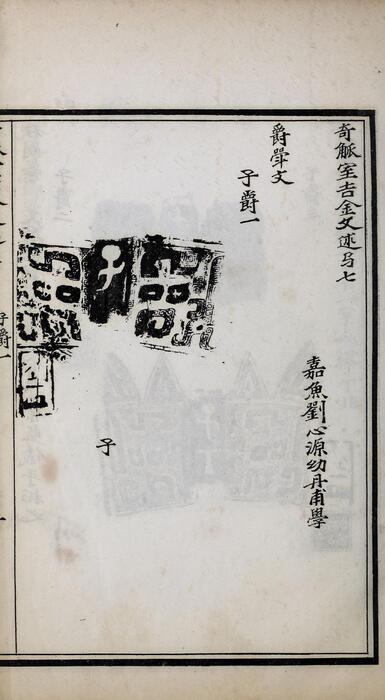 奇觚室吉金文述弓七
嘉魚劉心源幼丹甫學
爵斝文
子爵一
子
子爵一